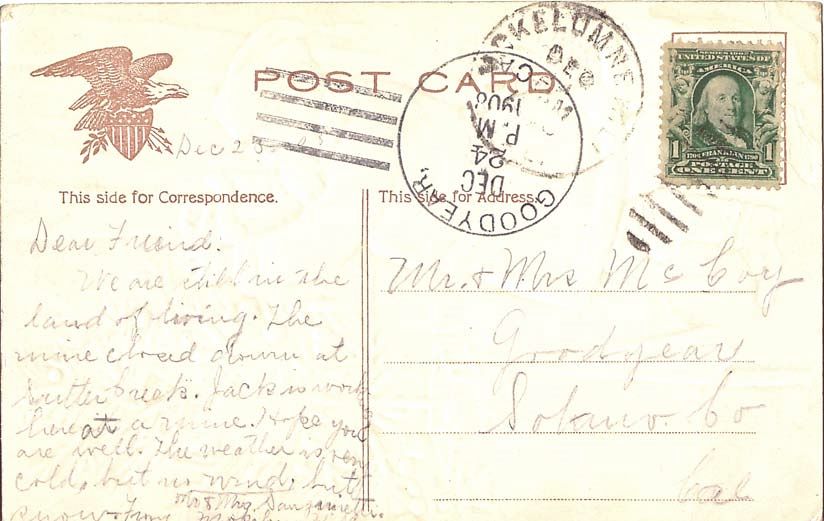 POST CARD
Dec 23
This side for Correspondence.
Dear Friend.
We are still in the
land of living. The
mine closed down at
Sutter Creek. Jack is work
here at a mine. Hope you
are well. The weather is very
cold, but no wind, but
snow. From Mr & Mrs
MOKELUMNE HILL
DEC
CAL
GOODYEAR,
DEC
24
P.M
1908
CAL
UNITED STATES OF
AMERICA
1 1
FRANKLIN
POSTAGE
ONE CENT
This side for Address.
Mr. & Mrs McCoy
Goodyear
Solano. Co
Cal